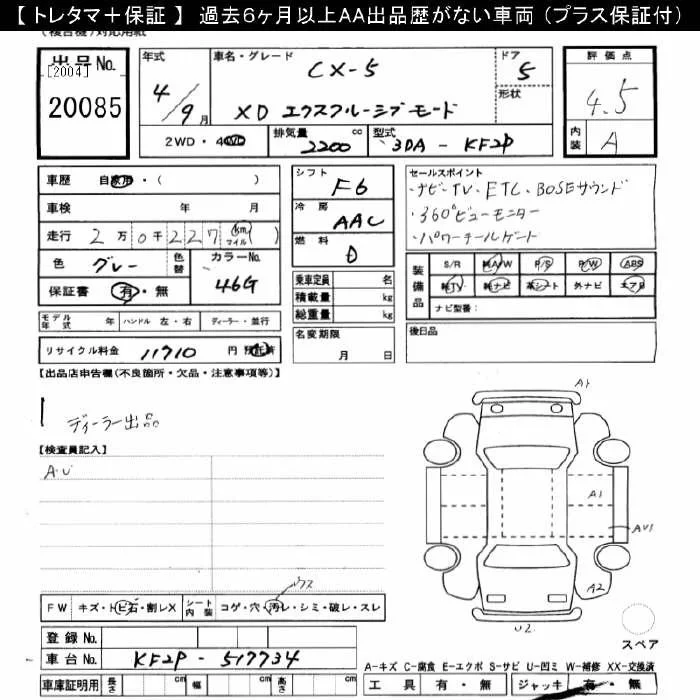 【 トレタマ＋保証 】 過去6ヶ月以上AA出品歴がない車両 (プラス保証付)
出品No.
[2004]
20085
年式
4/9月
車名・グレード
CX-5
XD エクスクルーシブモード
ドア
5
形状
評価点
4.5
内装
A
2WD・4WD
排気量
2200 cc
型式
3DA - KF2P
車歴 自家用・( )
車検 年 月
走行 2万0千227 km マイル ( )
色 グレー
色替
カラーNo.
46G
保証書 有・無
シフト
F6
冷房
AAC
燃料
D
セールスポイント
・ナビ・TV・ETC・BOSEサウンド
・360°ビューモニター
・パワーテールゲート
装備品
S/R 純A/W P/S P/W ABS
純TV 純ナビ 革シート 外ナビ エアB
ナビ型番：
乗車定員 名
積載量 kg
総重量 kg
モデル年式 年 ハンドル 左・右 ディーラー・並行
名変期限
月 日
後日品
リサイクル料金 11710 円 預託済
【出品店申告欄(不良箇所・欠品・注意事項等)】
ディーラー出品
【検査員記入】
A.U
A1
A1
AU1
A2
U2
スペア
ウス
FW キズ・トビ石・割レX シート内装 コゲ・穴・汚レ・シミ・破レ・スレ
登録No.
車台No. KF2P - 517734
車庫証明用 長さ cm 幅 cm 高さ cm
A-キズ C-腐食 E-エクボ S-サビ U-凹ミ W-補修 XX-交換済
工具 有・無 ジャッキ 有・無